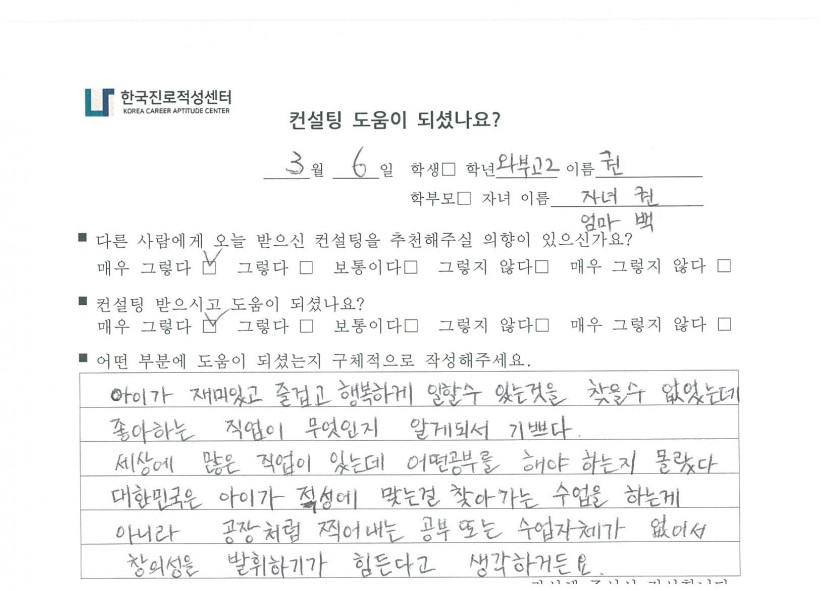 한국진로적성센터
KOREA CAREER APTITUDE CENTER
컨설팅 도움이 되셨나요?
3월 6일 학생□ 학년 와부고2 이름 권
학부모□ 자녀 이름 자녀 권
엄마 백
■ 다른 사람에게 오늘 받으신 컨설팅을 추천해주실 의향이 있으신가요?
매우 그렇다 ☑ 그렇다 □ 보통이다□ 그렇지 않다□ 매우 그렇지 않다 □
■ 컨설팅 받으시고 도움이 되셨나요?
매우 그렇다 ☑ 그렇다 □ 보통이다□ 그렇지 않다□ 매우 그렇지 않다 □
■ 어떤 부분에 도움이 되셨는지 구체적으로 작성해주세요.
아이가 재미있고 즐겁고 행복하게 일할수 있는것을 찾을수 없었는데
좋아하는 직업이 무엇인지 알게되서 기쁘다.
세상에 많은 직업이 있는데 어떤공부를 해야 하는지 몰랐다
대한민국은 아이가 적성에 맞는걸 찾아가는 수업을 하는게
아니라 공장처럼 찍어내는 공부 또는 수업자체가 없어서
창의성을 발휘하기가 힘든다고 생각하거든요.